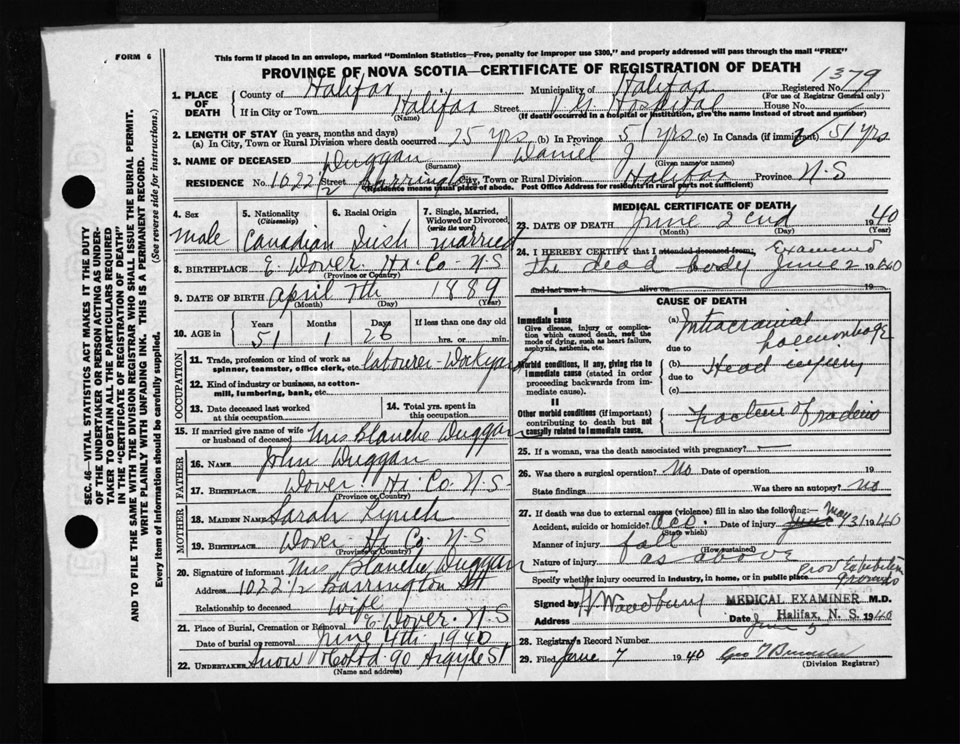 FORM 6
This form if placed in an envelope, marked "Dominion Statistics—Free, penalty for improper use $300," and properly addressed will pass through the mail "FREE"
PROVINCE OF NOVA SCOTIA—CERTIFICATE OF REGISTRATION OF DEATH
1. PLACE OF DEATH
County of Halifax Municipality of Halifax Registered No. 1379
(For use of Registrar General only)
If in City or Town Halifax Street V. G. Hospital House No.
(Name) (If death occurred in a hospital or institution, give the name instead of street and number)
2. LENGTH OF STAY (in years, months and days)
(a) In City, Town or Rural Division where death occurred 25 yrs (b) In Province 51 yrs (c) In Canada (if immigrant) 51 yrs
3. NAME OF DECEASED Duggan Daniel J
(Surname) (Given name or names)
RESIDENCE No. 1022½ Street Barrington City, Town or Rural Division Halifax Province N.S
(Residence means usual place of abode. Post Office Address for residents in rural parts not sufficient)
4. Sex Male
5. Nationality (Citizenship) Canadian
6. Racial Origin Irish
7. Single, Married, Widowed or Divorced (write the word) married
8. BIRTHPLACE E Dover Hx. Co. N-S
(Province or Country)
9. DATE OF BIRTH April 7th 1889
(Month) (Day) (Year)
10. AGE in Years 51 Months 1 Days 26 If less than one day old hrs. or min.
OCCUPATION
11. Trade, profession or kind of work as spinner, teamster, office clerk, etc. labourer - Dockyard
12. Kind of industry or business, as cotton-mill, lumbering, bank, etc.
13. Date deceased last worked at this occupation
14. Total yrs. spent in this occupation
15. If married give name of wife or husband of deceased Mrs Blanche Duggan
FATHER
16. NAME John Duggan
17. BIRTHPLACE Dover Hx. Co. N-S-
(Province or Country)
MOTHER
18. MAIDEN NAME Sarah Lynch
19. BIRTHPLACE Dover Hx Co N-S
(Province or Country)
20. Signature of informant Mrs Blanche Duggan
Address 1022½ Barrington St
Relationship to deceased Wife
21. Place of Burial, Cremation or Removal E Dover. N.S
Date of burial or removal June 4th 1940
22. UNDERTAKER Snow & Co Ltd 90 Argyle St
(Name and address)
MEDICAL CERTIFICATE OF DEATH
23. DATE OF DEATH June 2nd 1940
(Month) (Day) (Year)
24. I HEREBY CERTIFY that I attended deceased from: Examined
the dead body June 2 1940
and last saw h alive on 19
CAUSE OF DEATH
I
Immediate cause
Give disease, injury or complication which caused death, not the mode of dying, such as heart failure, asphyxia, asthenia, etc.
(a) Intracranial haemorrhage
due to
Morbid conditions, if any, giving rise to immediate cause (stated in order proceeding backwards from immediate cause).
(b) Head injury
due to
(c)
II
Other morbid conditions (if important) contributing to death but not causally related to immediate cause.
Fracture of radius
25. If a woman, was the death associated with pregnancy?
26. Was there a surgical operation? No Date of operation 19
State findings Was there an autopsy? no
27. If death was due to external causes (violence) fill in also the following:—
Accident, suicide or homicide? Acc. Date of injury June May 31 1940
(State which)
Manner of injury fall
(How sustained)
Nature of injury as above
Specify whether injury occurred in industry, in home, or in public place Prov Exhibition Grounds
Signed by H. Woodbury MEDICAL EXAMINER M.D.
Address Halifax, N. S.
Date June 3 1940
28. Registrar's Record Number
29. Filed June 7 1940
(Division Registrar)
SEC. 46—VITAL STATISTICS ACT MAKES IT THE DUTY
OF THE UNDERTAKER OR PERSON ACTING AS UNDER-
TAKER TO OBTAIN ALL THE PARTICULARS REQUIRED
IN THE "CERTIFICATE OF REGISTRATION OF DEATH"
AND TO FILE THE SAME WITH THE DIVISION REGISTRAR WHO SHALL ISSUE THE BURIAL PERMIT.
WRITE PLAINLY WITH UNFADING INK. THIS IS A PERMANENT RECORD.
Every item of information should be carefully supplied. (See reverse side for instructions.)